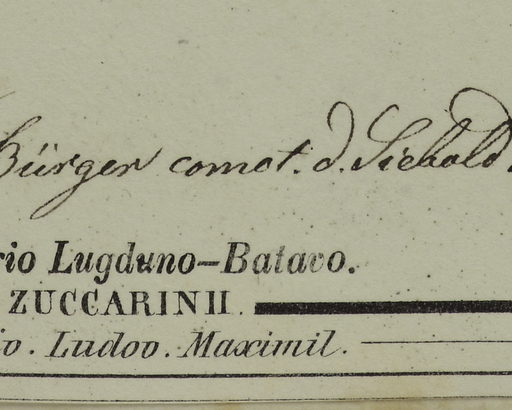 Bürger comot. d. Siebold.
rio Lugduno-Batavo.
ZUCCARINII.
io. Ludov. Maximil.